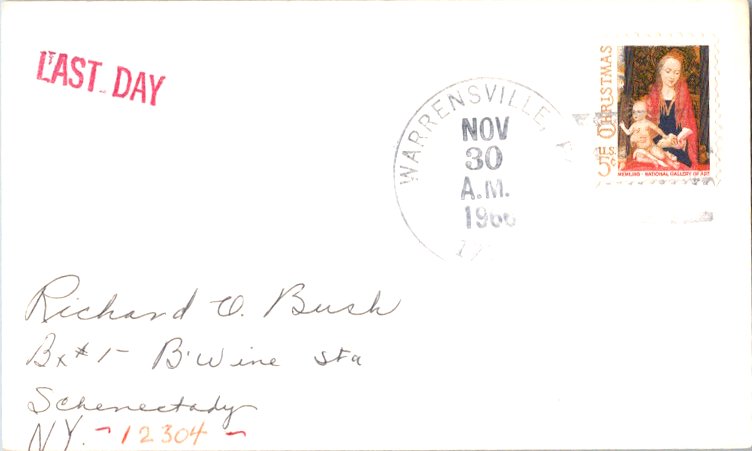 LAST DAY
WARRENSVILLE,
NOV
30
A.M.
1966
CHRISTMAS
U.S.
5c
MEMLING · NATIONAL GALLERY OF ART
Richard O. Bush
Bx # 1- B'Wine Sta
Schenectady
NY. - 12304 -